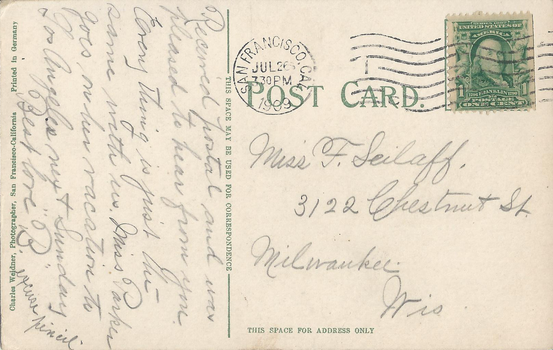 Received postal and was
pleased to hear from you.
Every thing is just the
same with us. Miss Parker
goes on her vacation to
Los Angeles next Sunday
Best love B
excuse pencil
Charles Weidner, Photographer, San Francisco-California Printed in Germany
THIS SPACE MAY BE USED FOR CORRESPONDENCE
SAN FRANCISCO, CAL.
JUL 26
7 30 PM
1909
POST CARD.
UNITED STATES OF AMERICA
POSTAGE
ONE CENT
Miss F. Seilaff.
3122 Chestnut St
Milwaukee
Wis
THIS SPACE FOR ADDRESS ONLY